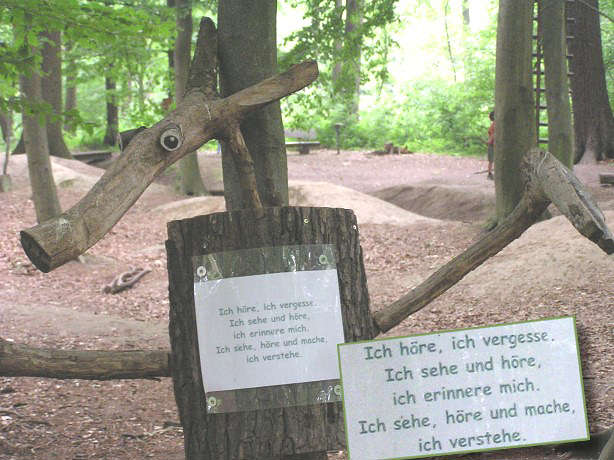 Ich höre, ich vergesse.
Ich sehe und höre,
ich erinnere mich.
Ich sehe, höre und mache,
ich verstehe.
Ich höre, ich vergesse.
Ich sehe und höre,
ich erinnere mich.
Ich sehe, höre und mache,
ich verstehe.